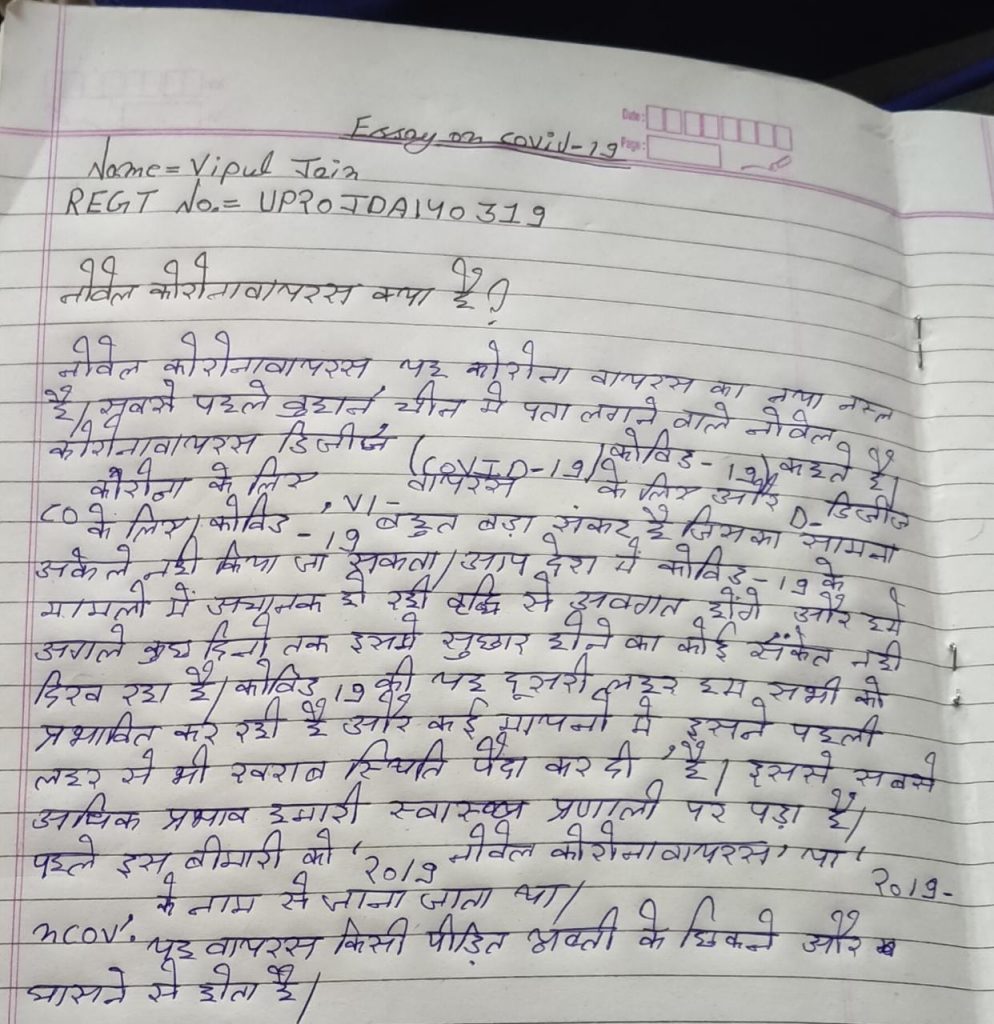 Date:
Page:
Essay on covid-19
Name = Vipul Jain
REGT No. = UP20JDA140319
नोवेल कोरोनावायरस क्या है?
नोवेल कोरोनावायरस यह कोरोना वायरस का नया नस्ल
है। सबसे पहले वुहान, चीन मे पता लगने वाले नोवेल
कोरोनावायरस डिजीज (COVID-19)(कोविड-19) कहते है।
CO कोरोना के लिए, VI- वायरस के लिए और D- डिजीज
के लिए। कोविड-19 बहुत बड़ा संकट है जिसका सामना
अकेले नही किया जा सकता। आप देश मे कोविड-19 के
मामलो में अचानक हो रही वृद्धि से अवगत होंगे और हमे
अगले कुछ दिनो तक इसमे सुधार होने का कोई संकेत नही
दिख रहा है। कोविड 19 की यह दूसरी लहर हम सभी को
प्रभावित कर रही है और कई मायनो मे इसने पहली
लहर से भी खराब स्थिति पैदा कर दी है। इससे सबसे
अधिक प्रभाव हमारी स्वास्थ्य प्रणाली पर पड़ा है।
पहले इस बीमारी को '2019 नोवेल कोरोनावायरस' या '2019-
ncov' के नाम से जाना जाता था।
यह वायरस किसी पीड़ित के छिकने और
खासने से होता है।